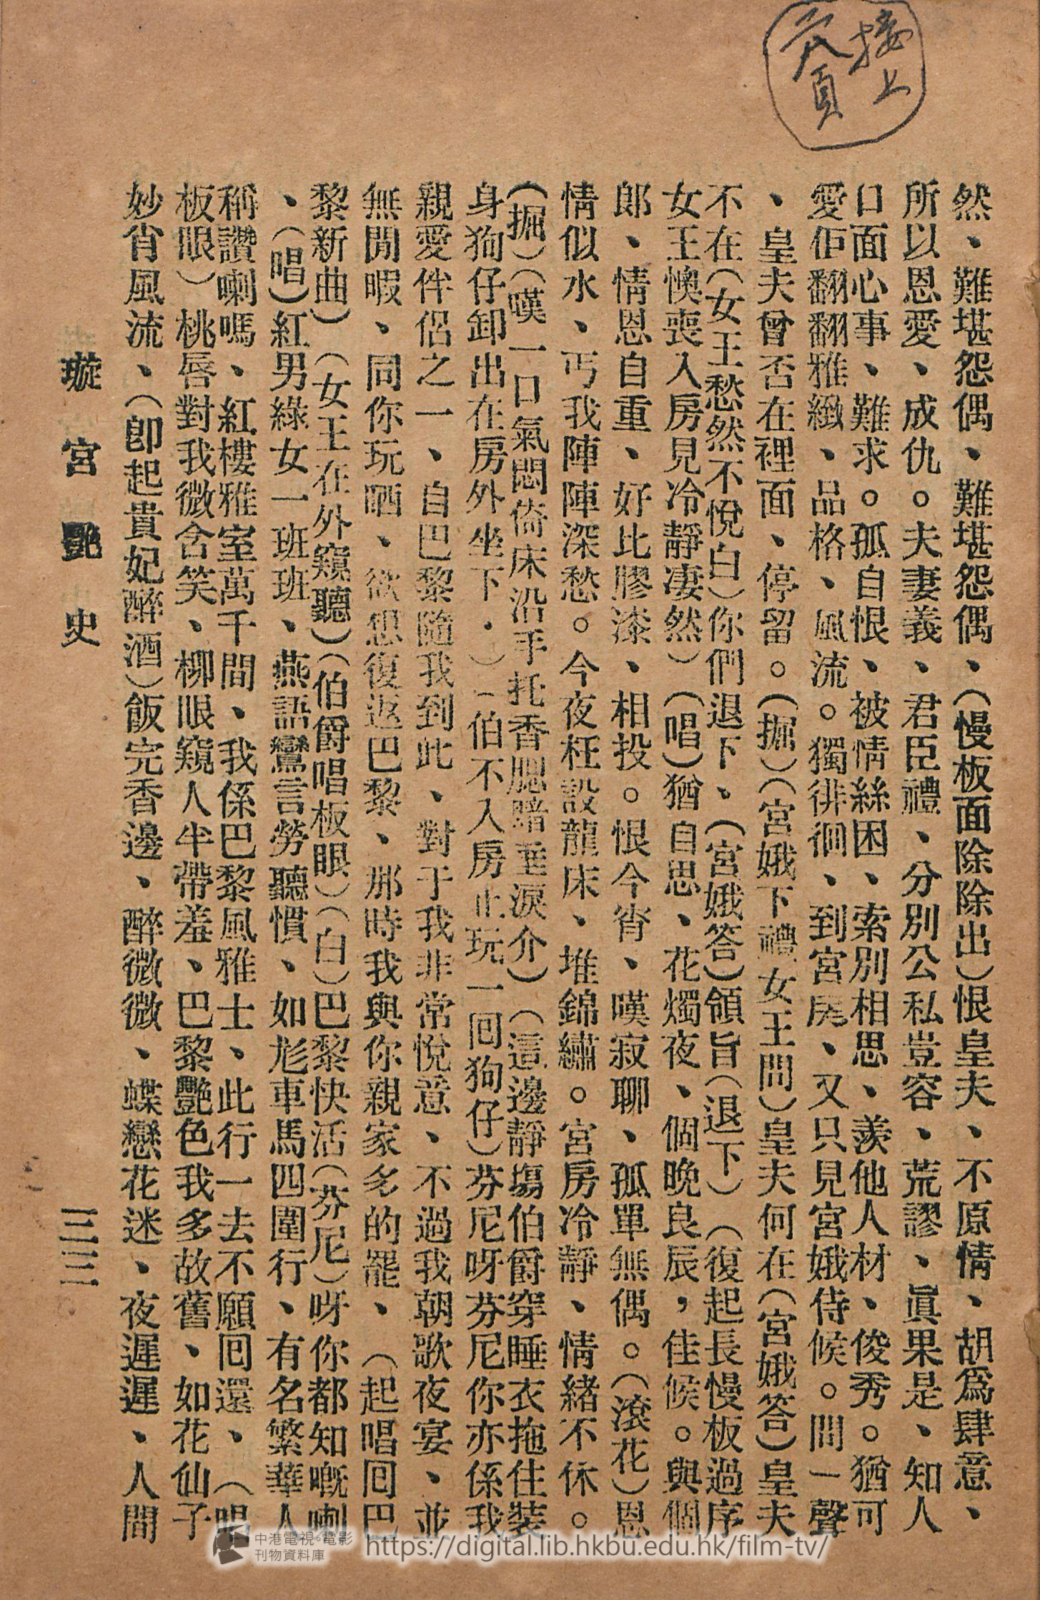 接上
頁
然、難堪怨偶、難堪怨偶、(慢板面除除出)恨皇夫、不原情、胡爲肆意、
所以恩愛、成仇。夫妻義、君臣禮、分別公私豈容、荒謬、眞果是、知人
口面心事、難求。孤自恨、被情絲困、索別相思、羨他人材、俊秀。猶可
愛佢翩翩雅緻、品格、風流。獨徘徊、到宮房、又只見宮娥侍候。問一聲
、皇夫曾否在裡面、停留。(掘)(宮娥下禮女王問)皇夫何在(宮娥答)皇夫
不在(女王愁然不悅白)你們退下、(宮娥答)領旨(退下)(復起長慢板過序
女王懊喪入房見冷靜凄然)(唱)猶自思、花燭夜、個晚良辰，佳候。與個
郎、情恩自重、好比膠漆、相投。恨今宵、嘆寂聊、孤單無偶。(滾花)恩
情似水、丐我陣陣深愁。今夜枉設龍床、堆錦繡。宮房冷靜、情緒不休。
(掘)(嘆一口氣悶倚床沿手托香腮暗垂淚介)(這邊靜塲伯爵穿睡衣拖住裝
身狗仔卸出在房外坐下．)(伯不入房止玩一囘狗仔)芬尼呀芬尼你亦係我
親愛伴侶之一、自巴黎隨我到此、對于我非常悅意、不過我朝歌夜宴、並
無閒暇、同你玩晒、欲想復返巴黎、那時我與你親家多的罷、(起唱囘巴
黎新曲)(女王在外窺聽)(伯爵唱板眼)(白)巴黎快活(芬尼)呀你都知嘅喇
、(唱)紅男綠女一班班、燕語鸞言勞聽慣、如彪車馬四圍行、有名繁華人
稱讚喇嗎、紅樓雅室萬千間、我係巴黎風雅士、此行一去不願囘還、(唱
板眼)桃唇對我微含笑、柳眼窺人半帶羞、巴黎艷色我多故舊、如花仙子
妙肖風流、(卽起貴妃醉酒)飯完香邊、醉微微、蝶戀花迷、夜遲遲、人間
璇宮艷史
三三
中港電視·電影
刊物資料庫
https://digital.lib.hkbu.edu.hk/film-tv/